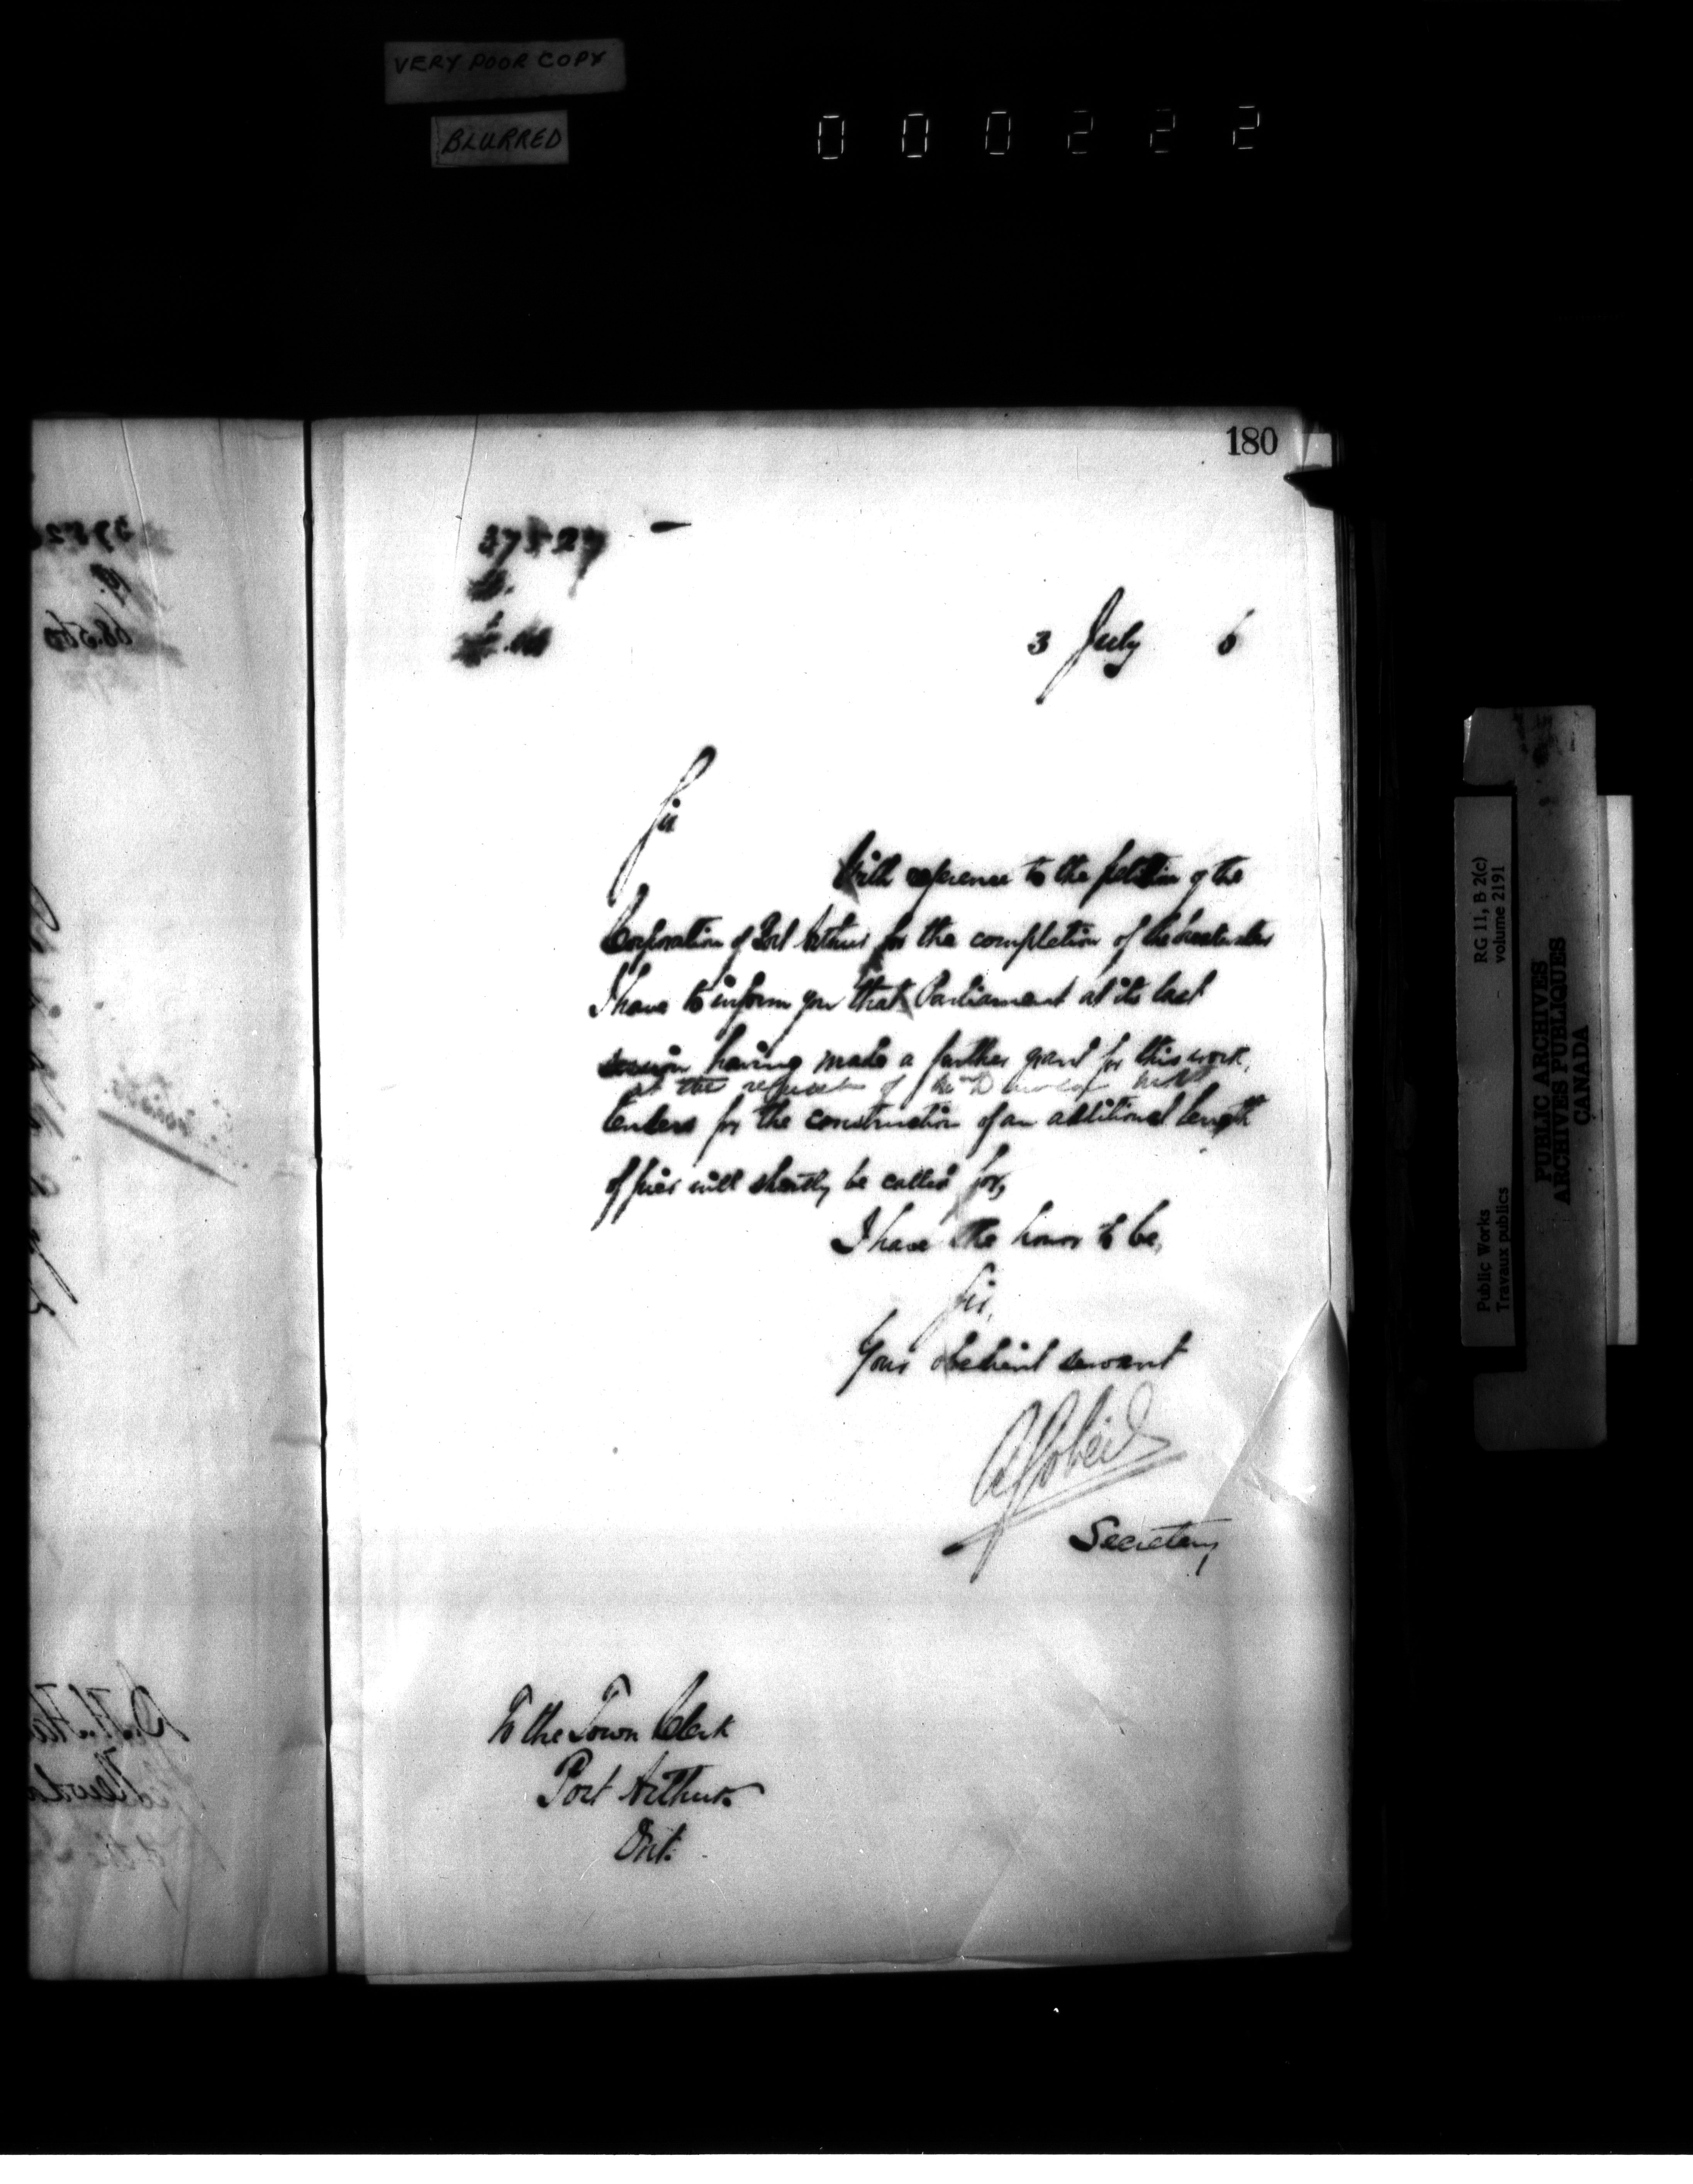 VERY POOR COPY
BLURRED
000222
180
37527
3 July 6
Sir
With reference to the petition of the
Corporation of Port Arthur for the completion of the breakwater
I have to inform you that Parliament at its last
session having made a further grant for this work,
at the request of
tenders for the construction of an additional length
of pier will shortly be called for,
I have the honor to be,
Sir,
Your obedient servant
A Gobeil
Secretary
To the Town Clerk
Port Arthur
Ont.
RG 11, B 2(c)
volume 2191
Public Works
Travaux publics
PUBLIC ARCHIVES
ARCHIVES PUBLIQUES
CANADA